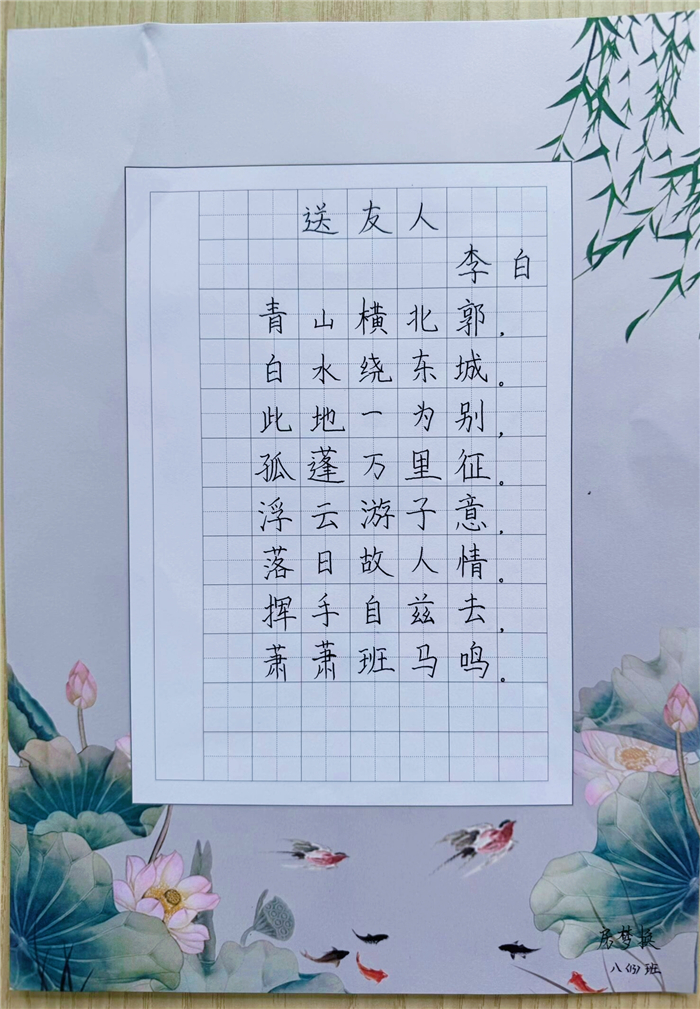 送友人
李白
青山横北郭,
白水绕东城。
此地一为别,
孤蓬万里征。
浮云游子意,
落日故人情。
挥手自兹去,
萧萧班马鸣。
房梦
八(13)班